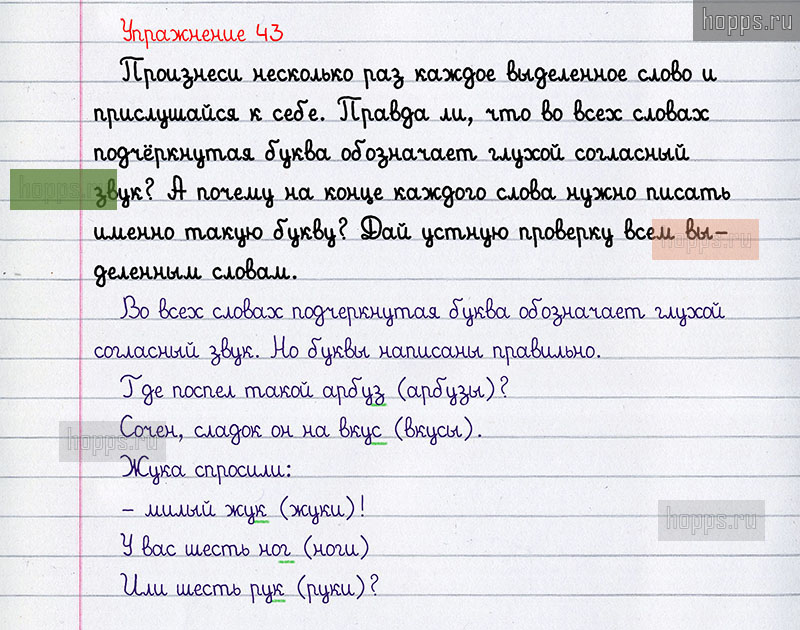 hopps.ru
Упражнение 43
Произнеси несколько раз каждое выделенное слово и
прислушайся к себе. Правда ли, что во всех словах
подчёркнутая буква обозначает глухой согласный
hopps.ru
звук? А почему на конце каждого слова нужно писать
именно такую букву? Дай устную проверку всем вы-
hopps.ru
деленным словам.
Во всех словах подчеркнутая буква обозначает глухой
согласный звук. Но буквы написаны правильно.
Где поспел такой арбуз (арбузы)?
Сочен, сладок он на вкус (вкусы).
hopps.ru
Жука спросили:
– милый жук (жуки)!
hopps.ru
У вас шесть ног (ноги)
Или шесть рук (руки)?